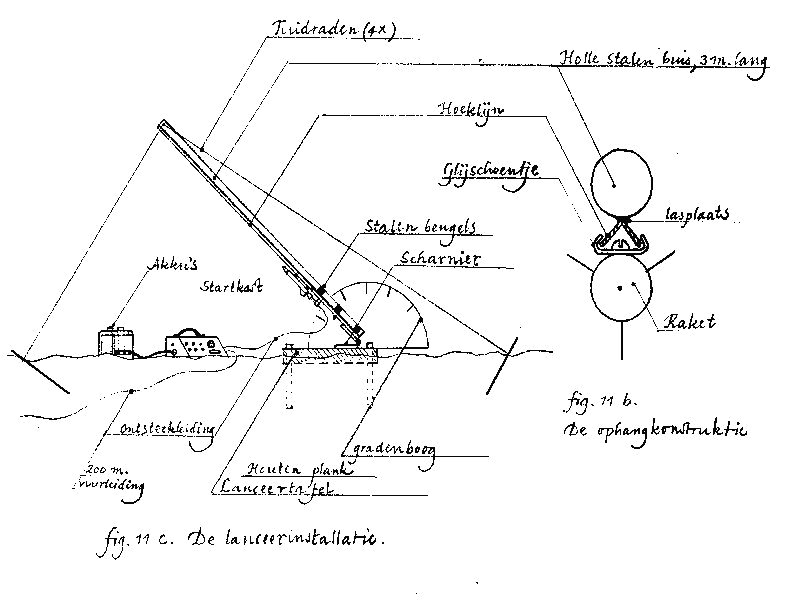 Tuidraden (4x)
Holle stalen buis, 3 m. lang
Hoeklijn
Glijschoentje
lasplaats
Stalen beugels
Scharnier
Akku's
Startkast
Raket
fig. 11 b.
De ophangkonstruktie
ontsteekleiding
gradenboog
200 m.
vuurleiding
Houten plank
Lanceertafel
fig. 11 c. De lanceerinstallatie.